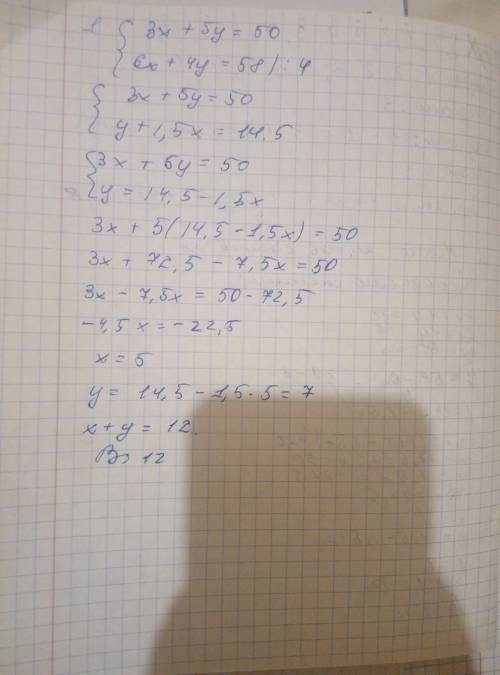 1 { 3x + 5y = 50
6x + 4y = 58 / : 4
{ 3x + 5y = 50
y + 1,5x = 14.5
{ 3x + 5y = 50
y = 14,5 - 1,5x
3x + 5(14,5 - 1,5x) = 50
3x + 72,5 - 7,5x = 50
3x - 7,5x = 50 - 72,5
-4,5x = -22,5
x = 5
y = 14,5 - 1,5 · 5 = 7
x + y = 12.
В) 12